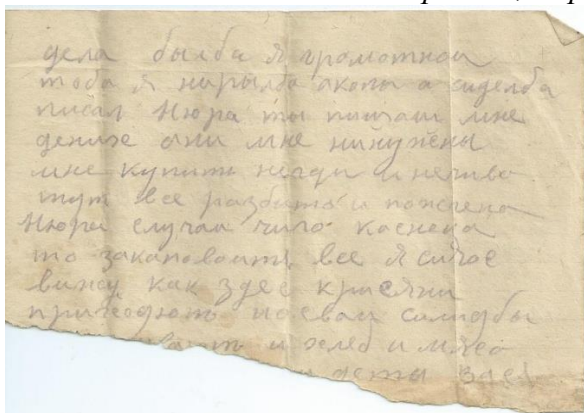 дела былба я громотной
тоба я нирылба акопы а сиделба
писал Нюра ты пишаш мне
дениже они мне нинужены
мне купить негди и нечиво
тут все разбита и пожжена
Нюра случаи чиго каснеца
то закаповаить все я сичас
вижу как здес крисяни
приходють на сваи силидбы
и хлеб и мяса
дети здес